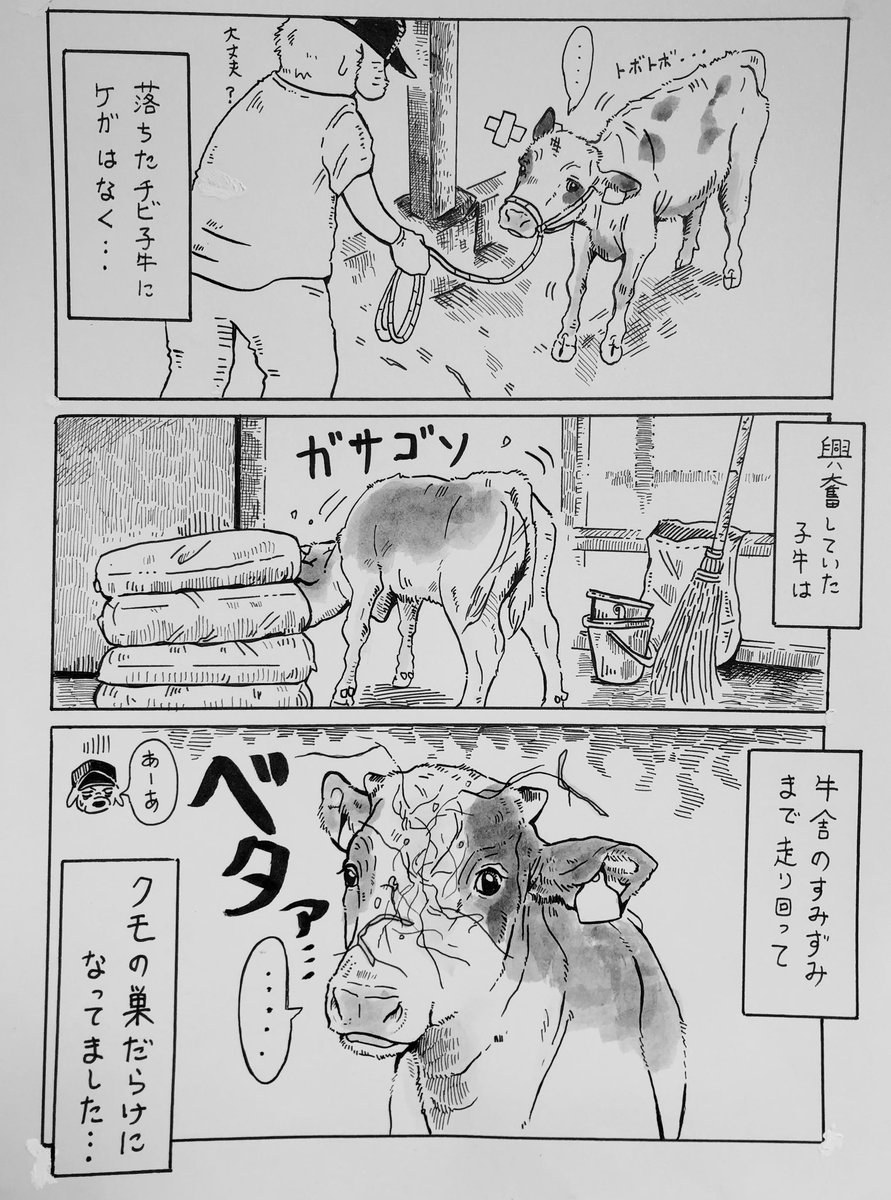 トボトボ・・・
・・・・
大丈夫？
落ちたチビ子牛に
ケガはなく・・・
興奮していた
子牛は
ガサゴソ
牛舎のすみずみ
まで走り回って
ベタァ・・・
あーあ
・・・・・
クモの巣だらけに
なってました・・・